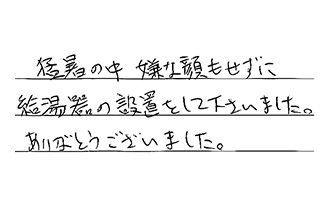 猛暑の中 嫌な顔もせずに
給湯器の設置をして下さいました。
ありがとうございました。